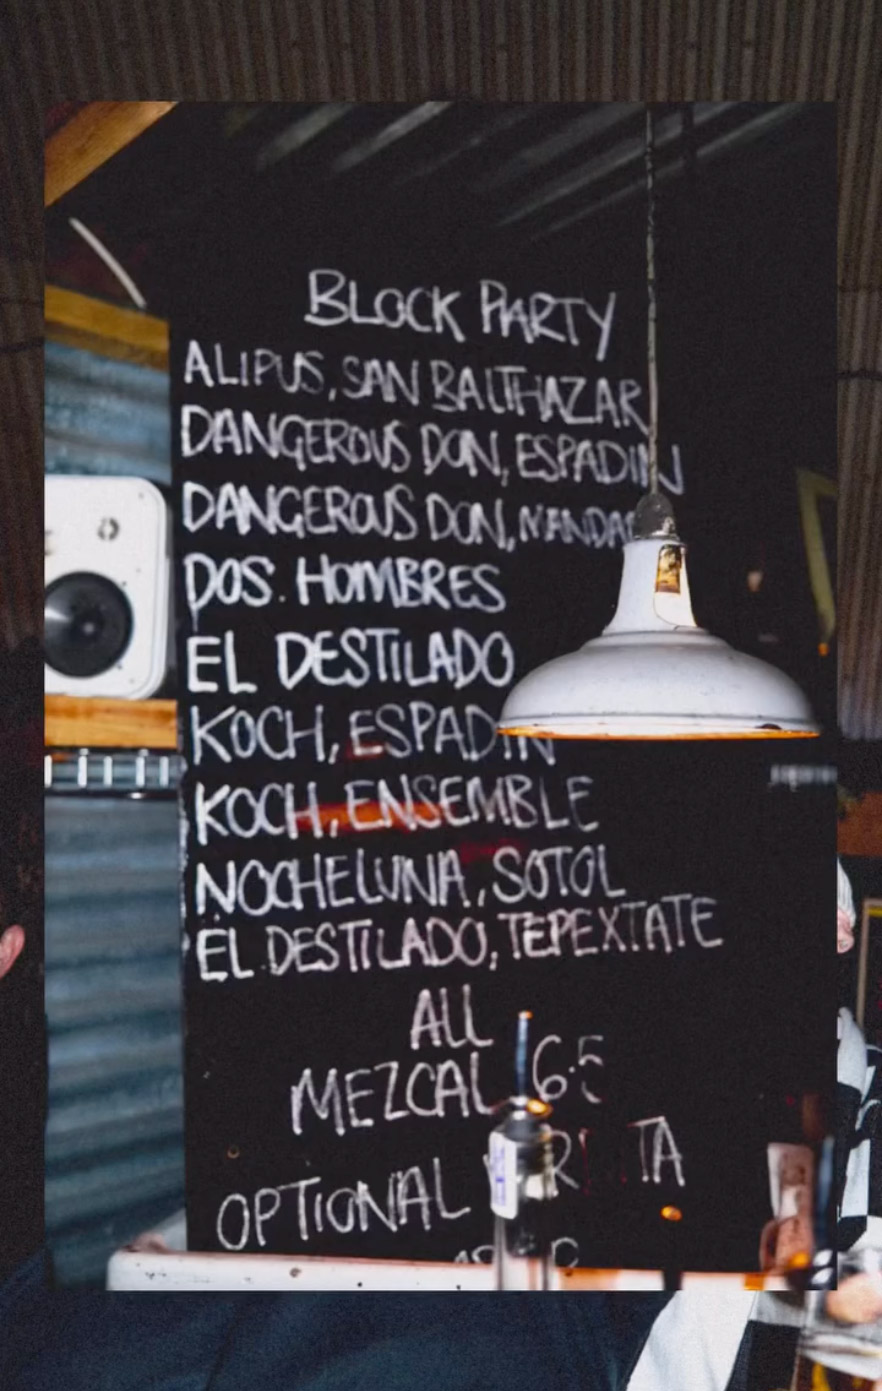 BLOCK PARTY
ALIPUS, SAN BALTHAZAR
DANGEROUS DON, ESPADIN
DANGEROUS DON,
DOS HOMBRES
EL DESTILADO
KOCH, ESPADIN
KOCH, ENSEMBLE
NOCHELUNA, SOTOL
EL DESTILADO, TEPEXTATE
ALL
MEZCAL 6.5
OPTIONAL